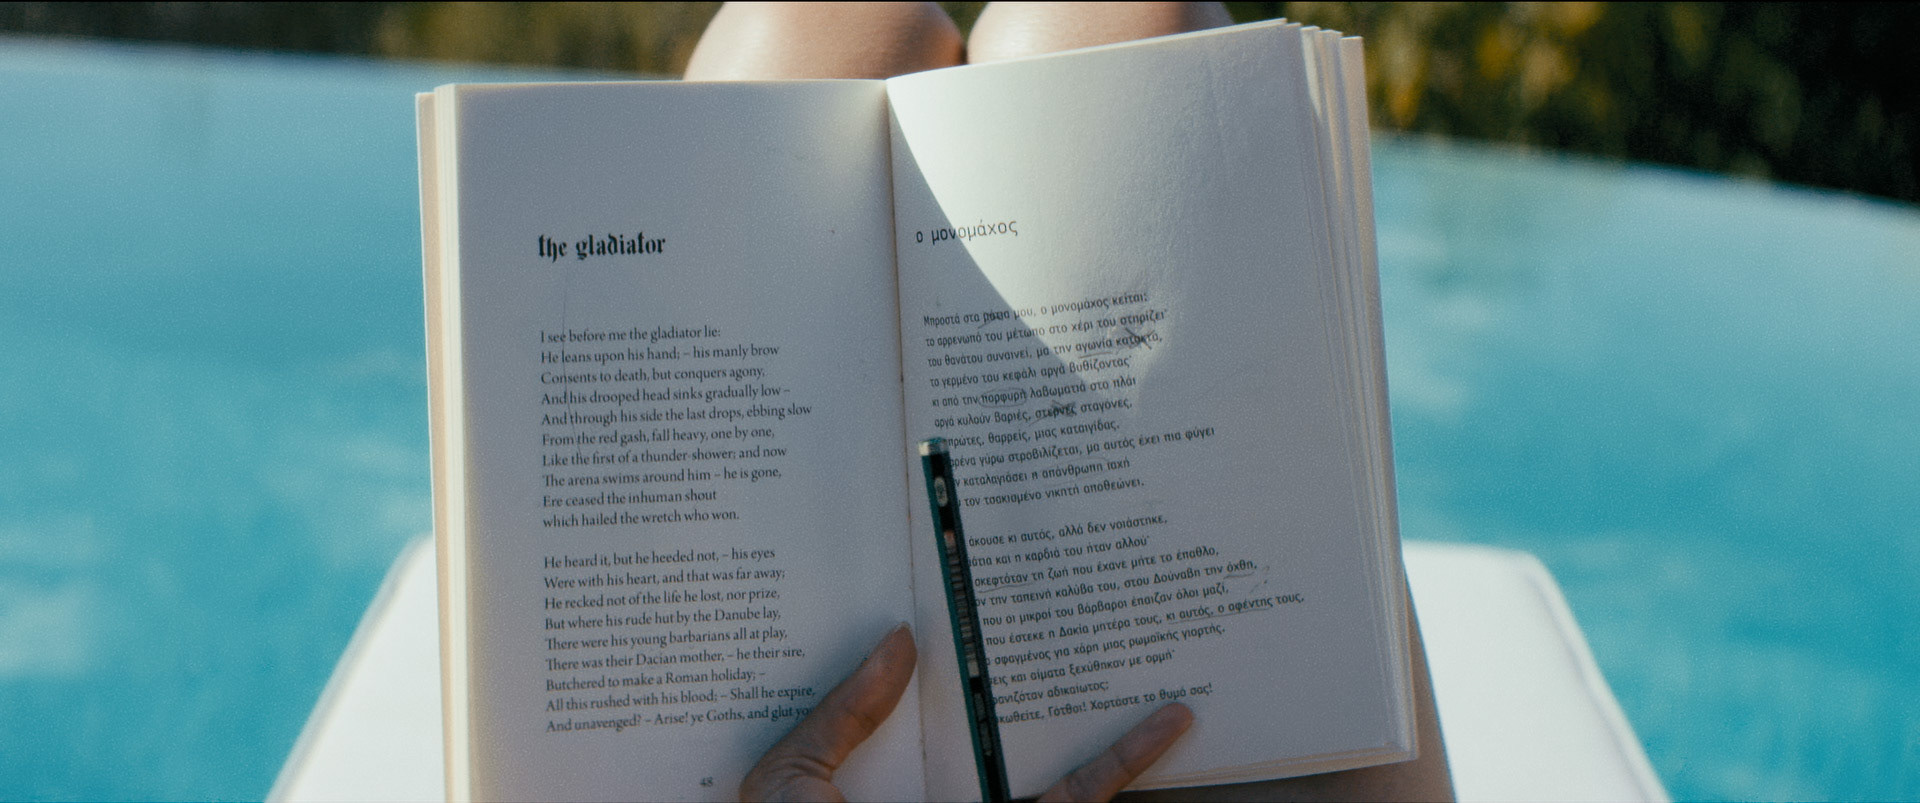 the gladiator
I see before me the gladiator lie:
He leans upon his hand; – his manly brow
Consents to death, but conquers agony,
And his drooped head sinks gradually low –
And through his side the last drops, ebbing slow
From the red gash, fall heavy, one by one,
Like the first of a thunder-shower; and now
The arena swims around him – he is gone,
Ere ceased the inhuman shout
which hailed the wretch who won.
He heard it, but he heeded not, – his eyes
Were with his heart, and that was far away;
He recked not of the life he lost, nor prize,
But where his rude hut by the Danube lay,
There were his young barbarians all at play,
There was their Dacian mother, – he their sire,
Butchered to make a Roman holiday; –
All this rushed with his blood; – Shall he expire,
And unavenged? – Arise! ye Goths, and glut
48
ο μονομάχος
Μπροστά στα μου, ο μονομάχος κείται:
το αρρενωπό του μέτωπο στο χέρι του στηρίζει·
του θανάτου συναινεί, μα την αγωνία κατακτά,
το γερμένο του κεφάλι αργά βυθίζοντας·
κι από την πορφυρή λαβωματιά στο πλάι
αργά κυλούν βαριές, στερνές σταγόνες,
πρώτες, θαρρείς, μιας καταιγίδας.
γύρω στροβιλίζεται, μα αυτός έχει πια φύγει
καταλαγιάσει η απάνθρωπη ιαχή
τον τσακισμένο νικητή αποθεώνει.
άκουσε κι αυτός, αλλά δεν νοιάστηκε,
και η καρδιά του ήταν αλλού·
σκεφτόταν τη ζωή που έχανε μήτε το έπαθλο,
την ταπεινή καλύβα του, στου Δούναβη την όχθη,
που οι μικροί του βάρβαροι έπαιζαν όλοι μαζί,
που έστεκε η Δακία μητέρα τους, κι αυτός, ο αφέντης τους,
σφαγμένος για χάρη μιας ρωμαϊκής γιορτής,
και αίματα ξεχύθηκαν με ορμή·
αδικαίωτος;
Γότθοι! Χορτάστε το θυμό σας!